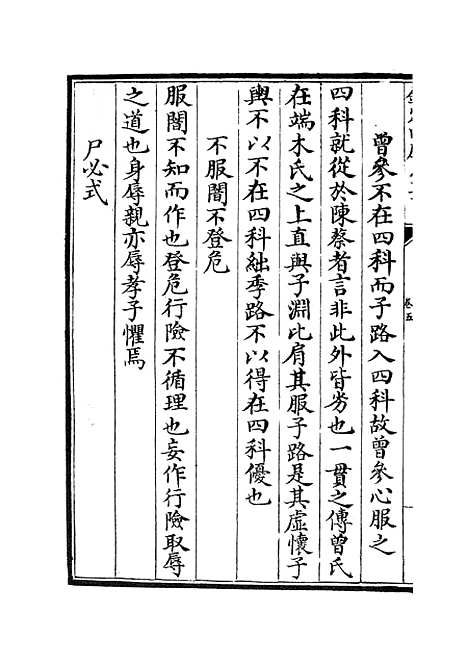 曾參不在四科而子路入四科故曾參心服之
四科就從於陳蔡者言非此外皆劣也一貫之傳曾氏
在端木氏之上直與子淵比肩其服子路是其虛懷子
輿不以不在四科絀季路不以得在四科優也
不服闇不登危
服闇不知而作也登危行險不循理也妄作行險取辱
之道也身辱親亦辱孝子懼焉
尸必式
卷五